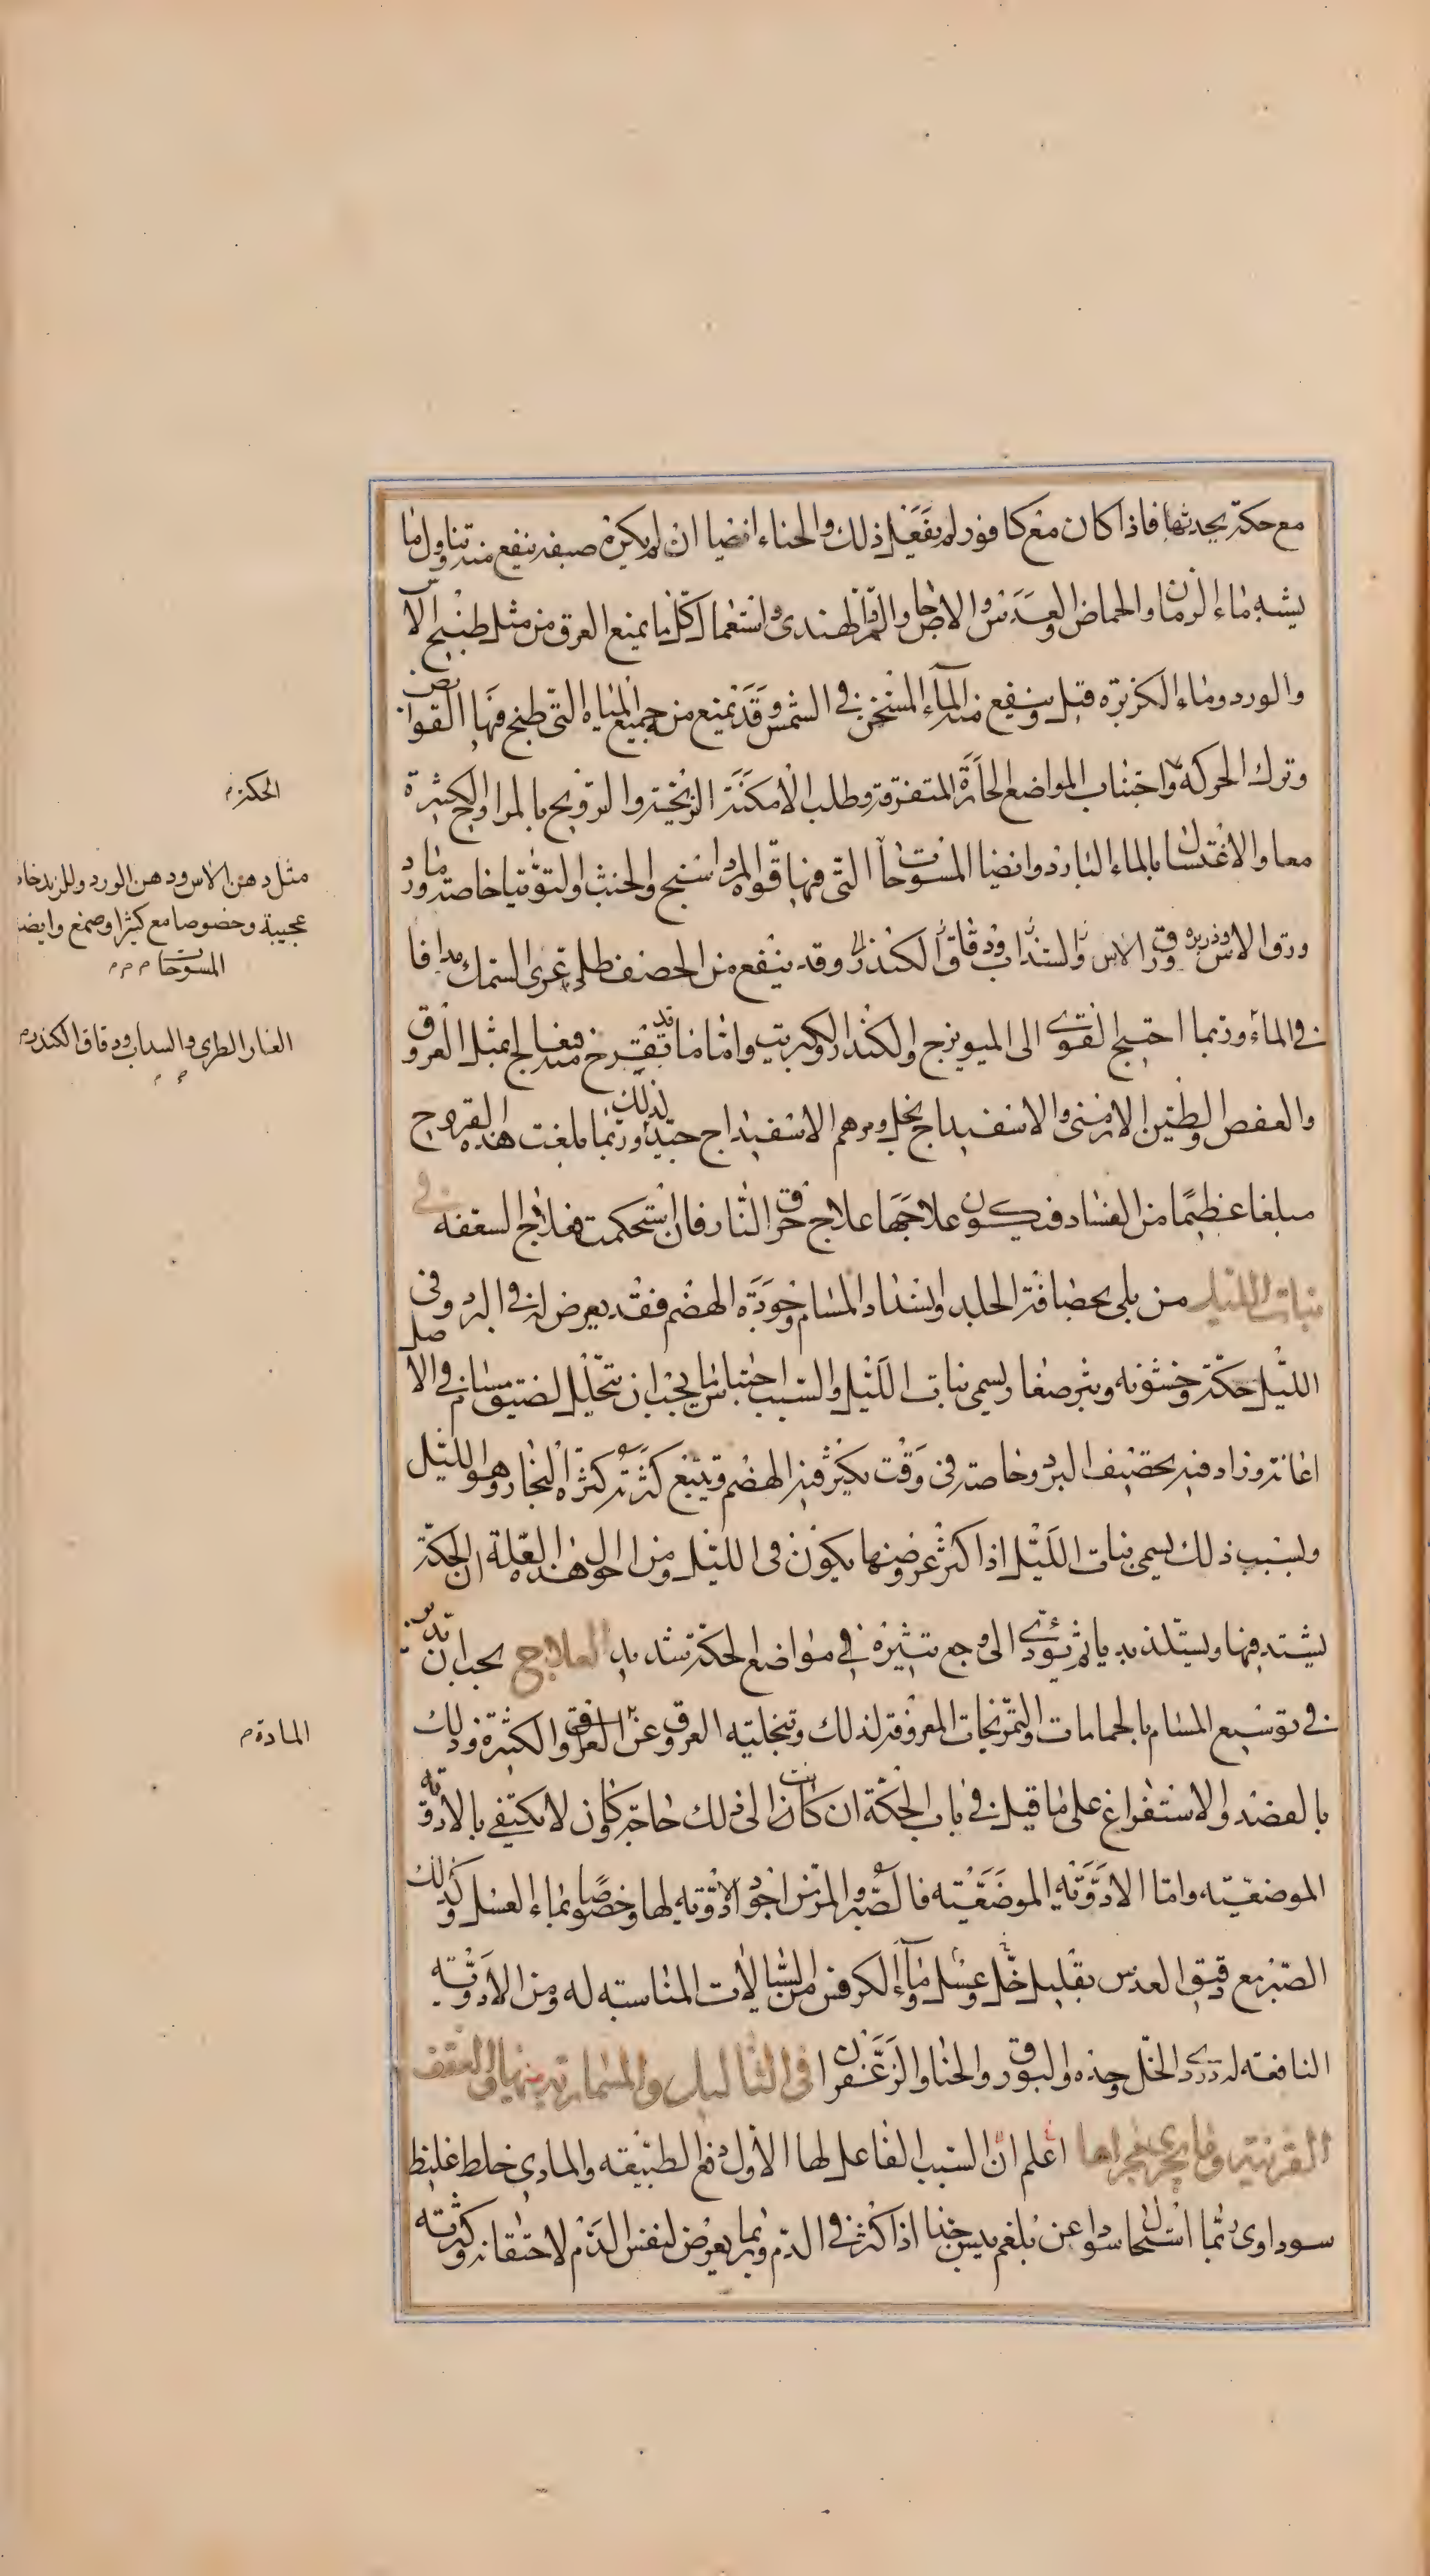 مع حكة يحدثها فاذا كان معه كافور لم يفعل ذلك والحناء ايضا ان لم يكن صبغه ينفع منه تناول ما
يشبه ماء الرمان والحماض والعدس والاجاص والتمر الهندى واستعمال كل ما يمنع العرق من مثل طبيخ الآس
والورد وماء الكزبره قيل وينفع منه الماء المسخن فى الشمس وقد يمنع من جميع المياه التى طبخ فيها القوابض
وترك الحركه واجتناب المواضع الحارة المتفرقة وطلب الامكنة الريحية والترويح بالمراوح الكثيرة
معا والاغتسال بالماء البارد وايضا المسوحات التى فيها قوة المرداسنج والخبث والتوتيا خاصة ماورد
ورق الاس وذريره ورق الاس والسذاب ودقاق الكندر وقد ينفع من الحصف طلى غرى السمك مدافا
فى الماء وربما احتيج القوى الى الميويزج والكندر والكبريت واما ما قد تقرح منه فيعالج بمثل العروق
والعفص والطين الارمنى والاسفيداج بخل ومرهم الاسفيداج جيد لذلك وربما بلغت هذه القروح
مبلغا عظيما من الفساد فيكون علاجها علاج حرق النار فان استحكمت فعلاج السعفه فى
بنات الليل من بلى بحصافة الجلد وانسداد المسام وجودة الهضم فقد يعرض له فى البرد وفى
الليل حكة وخشونه وبثر صغار ويسمى بنات الليل والسبب احتباس ما يجب ان يتحلل لضيق مسام فى الاصل
اعانته وزاد فيه تحصيف البرد وخاصة فى وقت يكثر فيه الهضم ويتبع كثرته كثرة البخار وهو الليل
وبسبب ذلك يسمى بنات الليل اذا كثر عروضها يكون فى الليل ومن احوال هذه العلة ان الحكة
يشتد فيها ويستلذ بديا ثم يؤدى الى وجع يثيره فى مواضع الحكة شديد العلاج يجب ان تدبر
فى توسيع المسام بالحمامات والتمريخات المعروفة لذلك وتخليه العروق عن العرق والكثيرة وذلك
بالفصد والاستفراغ على ما قيل فى باب الحكة ان كانت الى ذلك حاجة كون لا يكتفى بالادويه
الموضعيته واما الادويه الموضعيته فالصبر والمر من اجود الادويه لها وخصوصا بماء العسل وكذلك
الصبر مع دقيق العدس بقليل خل وعسل وماء الكرفس من السيالات المناسبه له ومن الادويه
النافعه له دردى الخل وحده والبورق والحنا والزعفران فى الثاليل والمسمارية منها والعقف
القرنية وما يجرى مجراها اعلم ان السبب الفاعل لها الاول دفع الطبيعه والمادى خلط غليظ
سوداوى ربما استحال سودا عن بلغم يبس جدا اذا كثر فى الدم وربما يعرض لنفس الدم لاحتقانه وكثرته
الحكة م
مثل دهن الاس ودهن الورد وللزبد خاصية
عجيبة وخصوصا مع كثيرا وصمغ وايضا
المسوحات م م م
الغار الطرى والسداب ودقاق الكندر م
المادة م